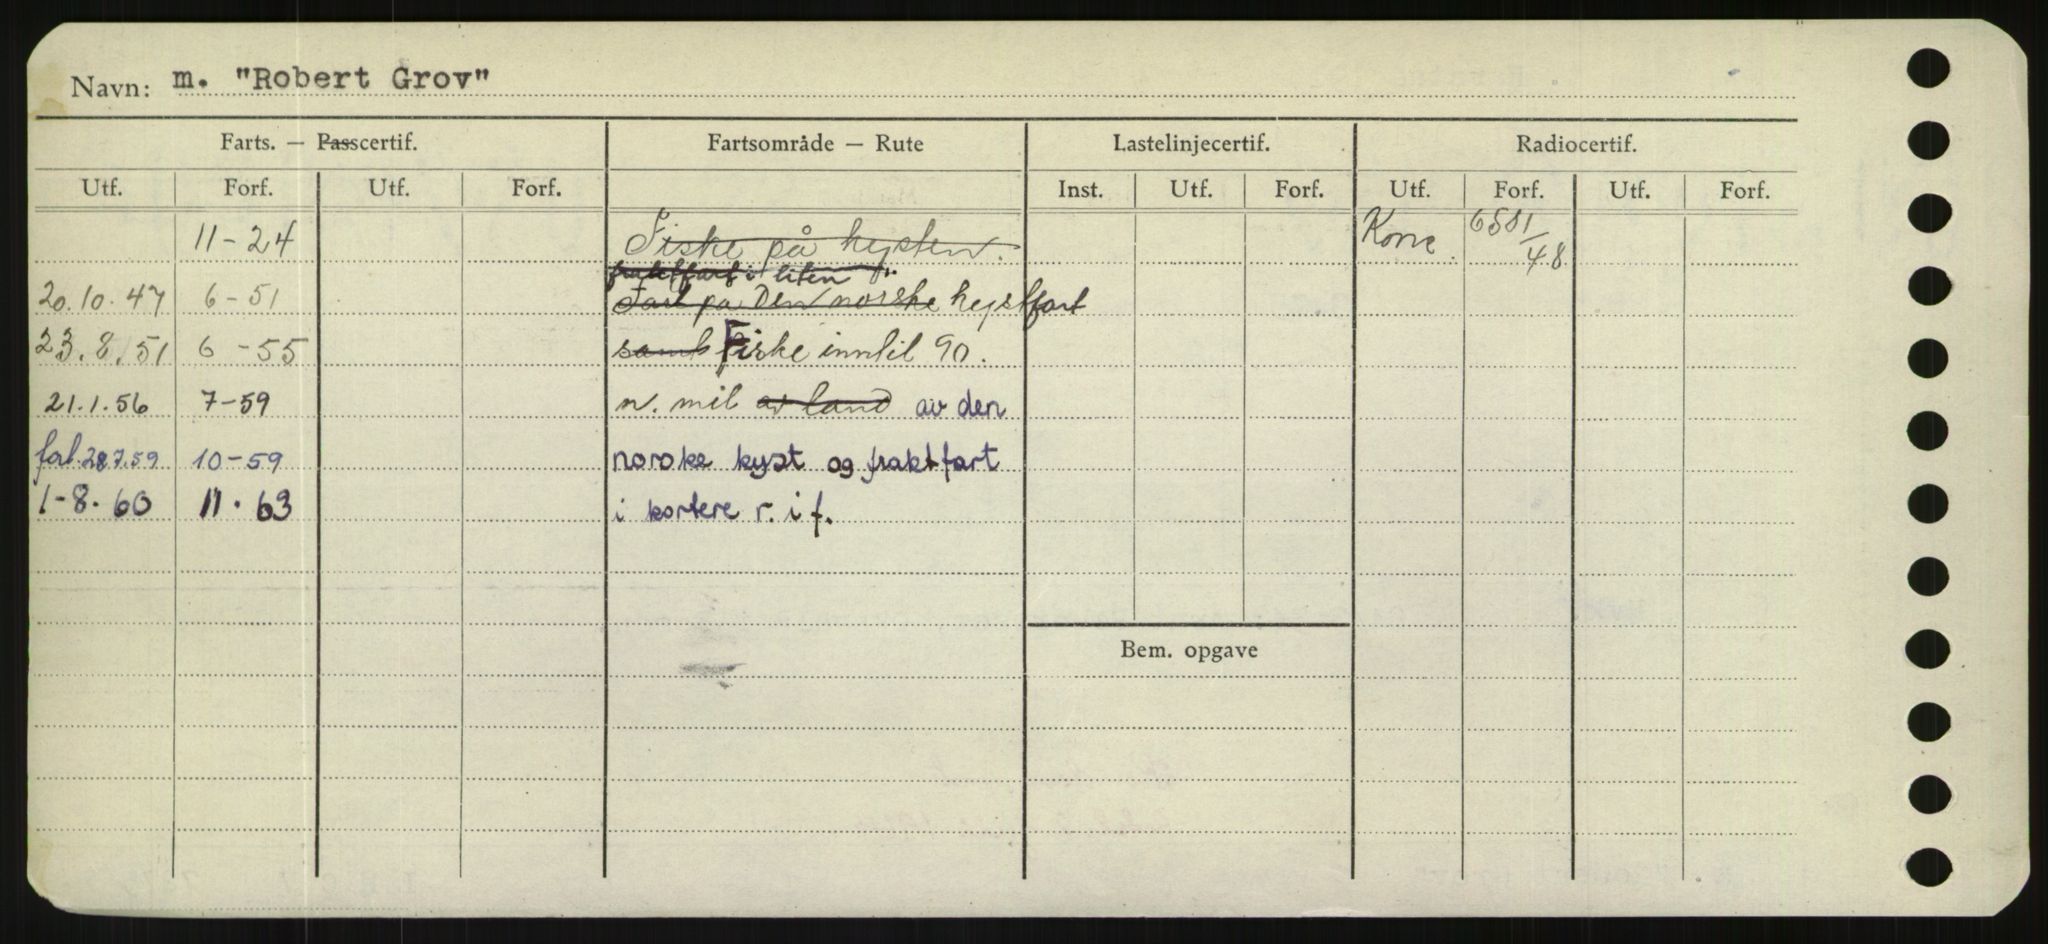 Navn: m. "Robert Grov"
Farts. — Passcertif. Fartsområde — Rute Lastelinjecertif. Radiocertif.
Utf. Forf. Utf. Forf. Inst. Utf. Forf. Utf. Forf. Utf. Forf.
11-24 Fiske på kysten. Konc. 6581/48
fraktfart i liten
20.10.47 6-51 Fart på Den norske kystfart
23.8.51 6-55 samt Fiske inntil 90.
21.1.56 7-59 n. mil av land av den
forl. 28.7.59 10-59 norske kyst og fraktfart
1-8.60 11.63 i kortere r. i f.
Bem. opgave